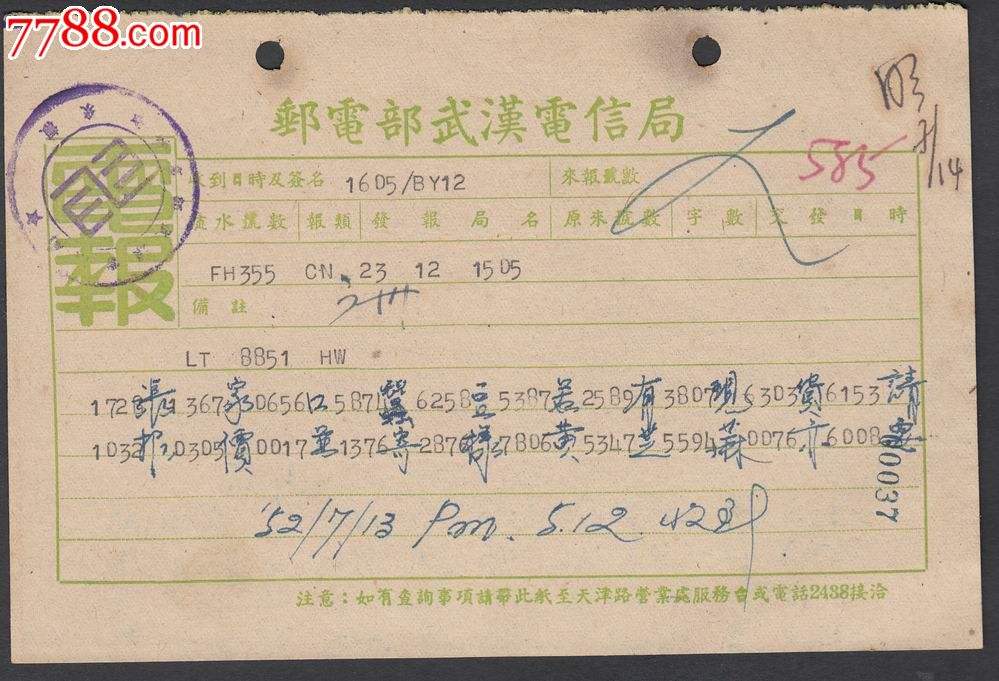 7788.com
郵電部武漢電信局
585
7/14
電報
收到日時及簽名 1605/BY12 來報號數
流水號數 報類 發報局名 原來號數 字數 交發日時
FH355 CN 23 12 1505
備註
LT 8851 HW
1728張 1367家 0656口 5871蠶 6258豆 5387若 2589有 3807現 6303貨 6153請
1032報 0303價 0017並 1376寄 2876樣 7806黃 5347芝 5594蔴 0076亦 6008要
0037
'52/7/13 Pm. 5.12
注意：如有查詢事項請帶此紙至天津路營業處服務台或電話2438接洽